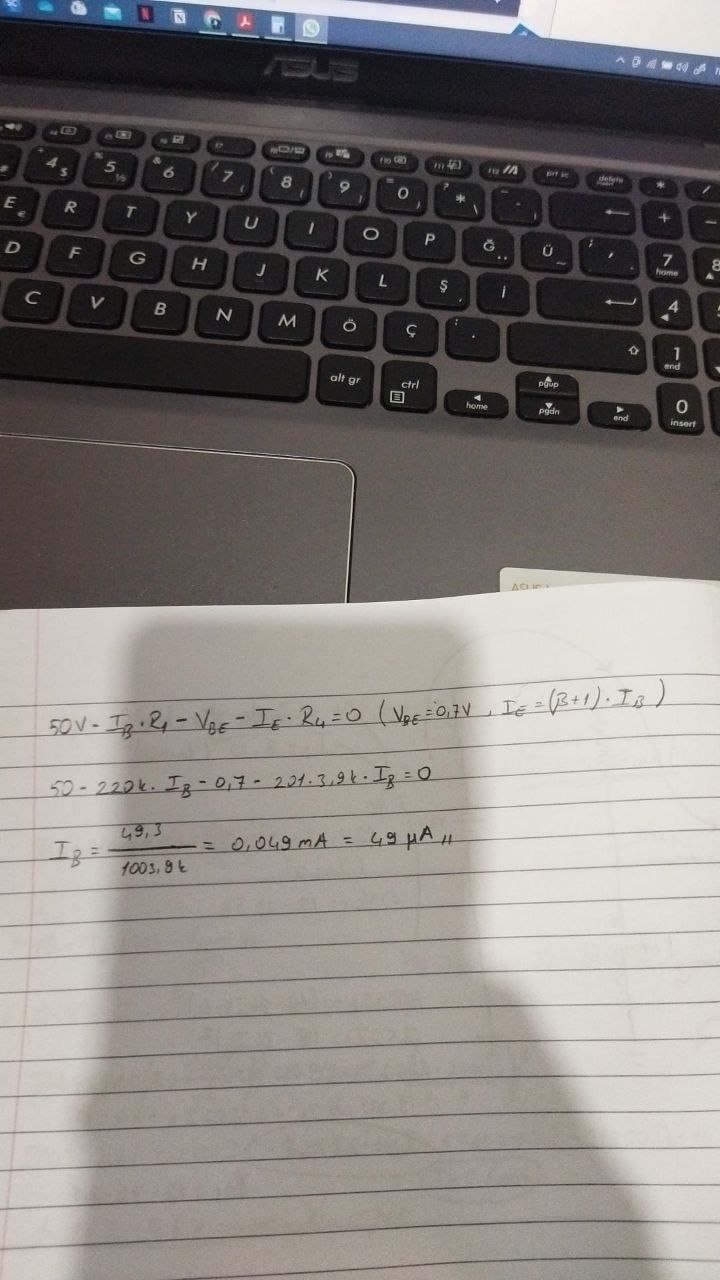 ASUS
F7 F10 F11 F12 prt sc delete
4 $ 5 ½ 6 7 8 9 0 *
E € R T Y U I O P Ğ Ü + 7 home 8
D F G H J K L Ş İ 4
C V B N M Ö Ç 1 end
alt gr ctrl home pgup pgdn end 0 insert
ASUS
50V - I_B . R_1 - V_BE - I_E . R_4 = 0 ( V_BE = 0,7V , I_E = (β+1) . I_B )
50 - 220k . I_B - 0,7 - 201 . 3,9k . I_B = 0
I_B = 49,3 / 1003,9k = 0,049 mA = 49 µA //